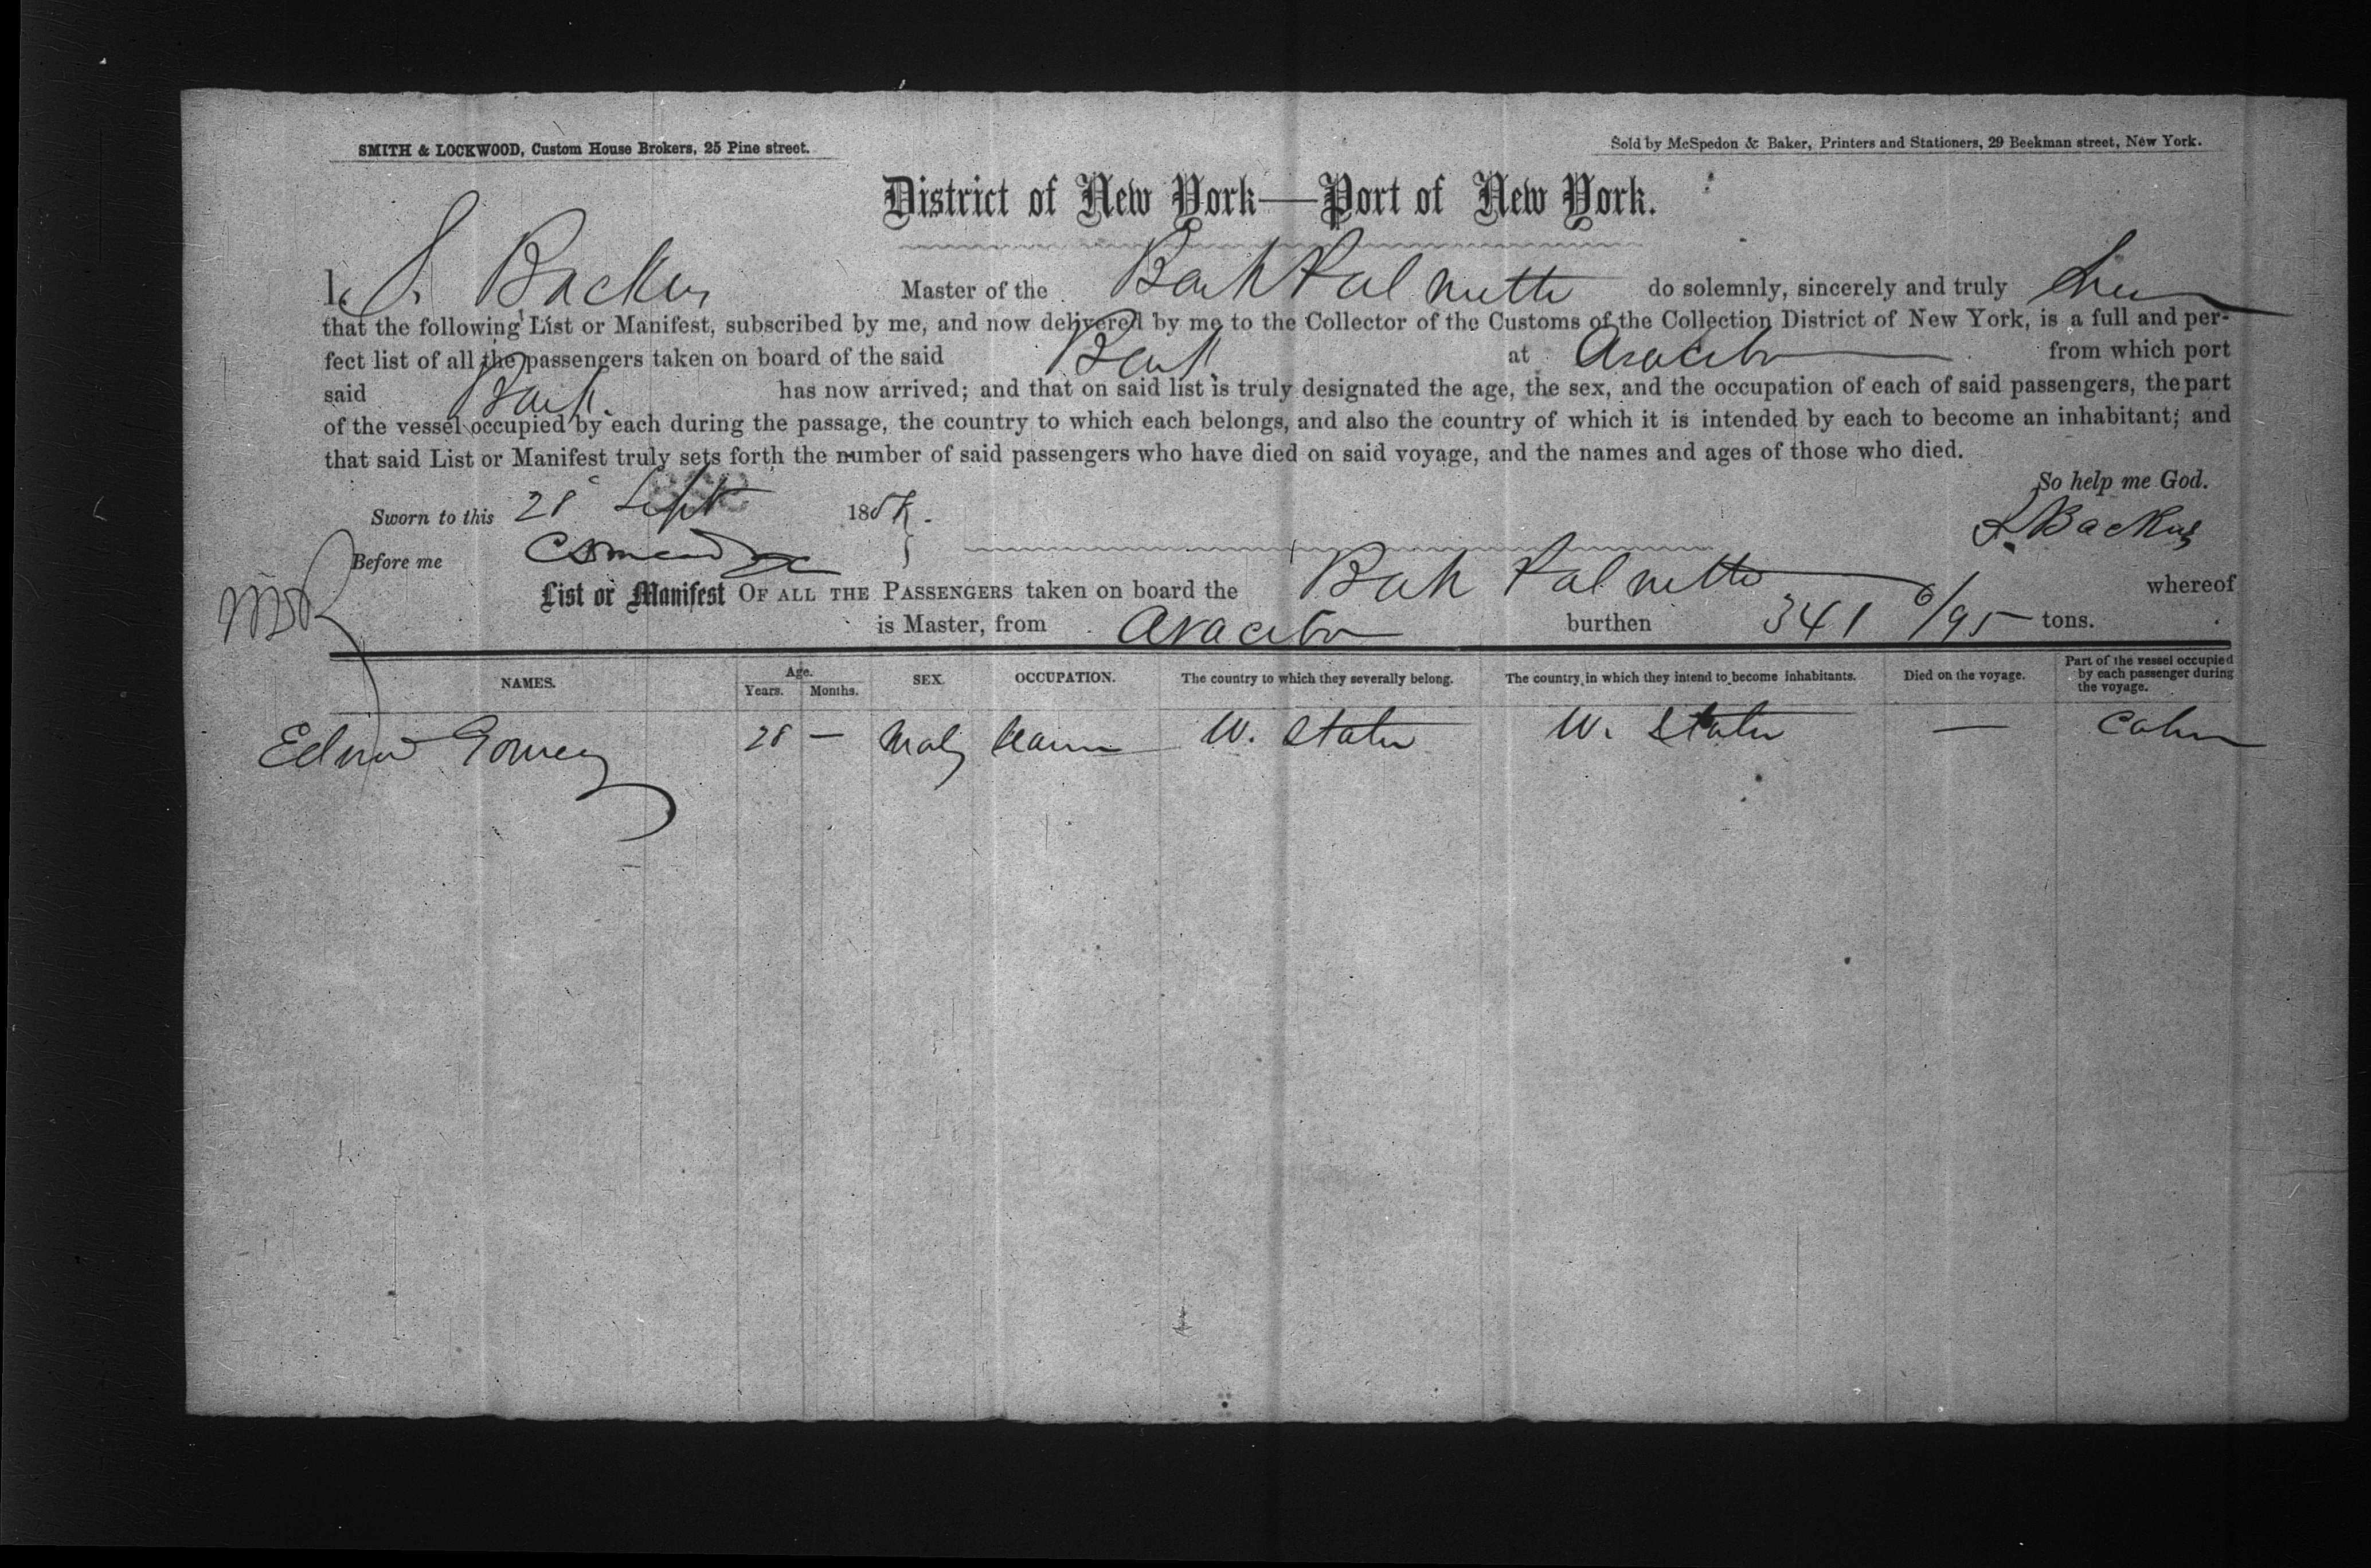 SMITH & LOCKWOOD, Custom House Brokers, 25 Pine street.
Sold by McSpedon & Baker, Printers and Stationers, 29 Beekman street, New York.
District of New York—Port of New York.
I, S. Backus Master of the Bark Palmetto do solemnly, sincerely and truly
that the following List or Manifest, subscribed by me, and now delivered by me to the Collector of the Customs of the Collection District of New York, is a full and per-
fect list of all the passengers taken on board of the said Bark at Arecibo from which port
said Bark has now arrived; and that on said list is truly designated the age, the sex, and the occupation of each of said passengers, the part
of the vessel occupied by each during the passage, the country to which each belongs, and also the country of which it is intended by each to become an inhabitant; and
that said List or Manifest truly sets forth the number of said passengers who have died on said voyage, and the names and ages of those who died.
So help me God.
Sworn to this 28 Sept 185
S. Backus
Before me
List or Manifest OF ALL THE PASSENGERS taken on board the Bark Palmetto whereof
is Master, from Arecibo burthen 341 6/95 tons.
NAMES. Age. Years. Months. SEX. OCCUPATION. The country to which they severally belong. The country in which they intend to become inhabitants. Died on the voyage. Part of the vessel occupied by each passenger during the voyage.
28 — Male U. States U. States — Cabin